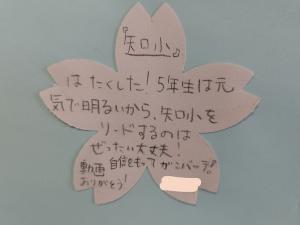 『矢口小』
はたくした！５年生は元
気で明るいから、矢口小を
リードするのは
ぜったい大丈夫！
動画 自信をもってがんバーデ！
ありがとう！